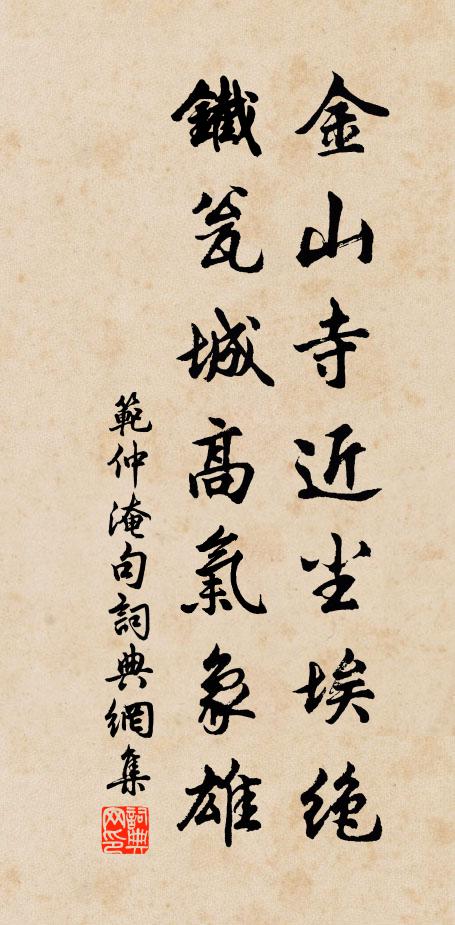 金山寺近尘埃绝
鐵瓮城高氣象雄
範仲淹句詞典網集
詞典网印